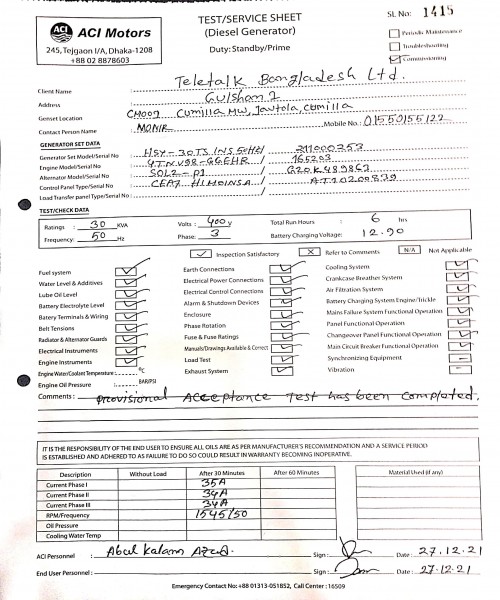 TEST/SERVICE SHEET
(Diesel Generator)
Duty: Standby/Prime
SL No: 1415
ACI Motors
245, Tejgaon I/A, Dhaka-1208
+88 02 8878603
Periodic Maintenance
Troubleshooting
Commissioning
Client Name Teletalk Bangladesh Ltd.
Address Gulshan 1
Genset Location CM007 Cumilla MW, Jautola, Cumilla
Contact Person Name MONIR Mobile No: 01550155122
GENERATOR SET DATA
Generator Set Model/Serial No HSY-30T5 INS 50HZ / 211000253
Engine Model/Serial No 4TNV98-GGEHR / 165203
Alternator Model/Serial No SOL2-P1 / G20K489863
Control Panel Type/Serial No CEA7 HIMOINSA / AT10200839
Load Transfer panel Type/Serial No /
TEST/CHECK DATA
Ratings : 30 KVA Volts : 400 V Total Run Hours : 6 hrs
Frequency: 50 Hz Phase: 3 Battery Charging Voltage: 12.90
Inspection Satisfactory X Refer to Comments N/A Not Applicable
Fuel system
Water Level & Additives
Lube Oil Level
Battery Electrolyte Level
Battery Terminals & Wiring
Belt Tensions
Radiator & Alternator Guards
Electrical Instruments
Engine Instruments
Engine Water/Coolant Temperature: °C
Engine Oil Pressure : BAR/PSI
Earth Connections
Electrical Power Connections
Electrical Control Connections
Alarm & Shutdown Devices
Enclosure
Phase Rotation
Fuse & Fuse Ratings
Manuals/Drawings Available & Correct
Load Test
Exhaust System
Cooling System
Crankcase Breather System
Air Filtration System
Battery Charging System Engine/Trickle
Mains Failure System Functional Operation
Panel Functional Operation
Changeover Panel Functional Operation
Main Circuit Breaker Functional Operation
Synchronizing Equipment
Vibration
Comments : Provisional Acceptance Test has been completed.
IT IS THE RESPONSIBILITY OF THE END USER TO ENSURE ALL OILS ARE AS PER MANUFACTURER'S RECOMMENDATION AND A SERVICE PERIOD
IS ESTABLISHED AND ADHERED TO AS FAILURE TO DO SO COULD RESULT IN WARRANTY BECOMING INOPERATIVE.
Description Without Load After 30 Minutes After 60 Minutes Material Used (if any)
Current Phase I 35A
Current Phase II 34A
Current Phase III 34A
RPM/Frequency 1545/50
Oil Pressure
Cooling Water Temp
ACI Personnel : Abul Kalam Azad. Sign : Date : 27.12.21
End User Personnel : Sign : Date : 27.12.21
Emergency Contact No: +88 01313-051852, Call Center : 16509